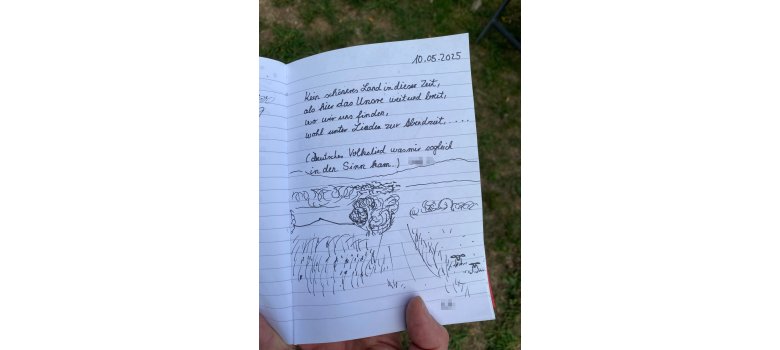 10.05.2025
Kein schöneres Land in dieser Zeit,
als hier das Unsre weit und breit,
wo wir uns finden,
wohl unter Linden zur Abendzeit, ....
(Deutsches Volkslied was mir sogleich
in der Sinn kam.)